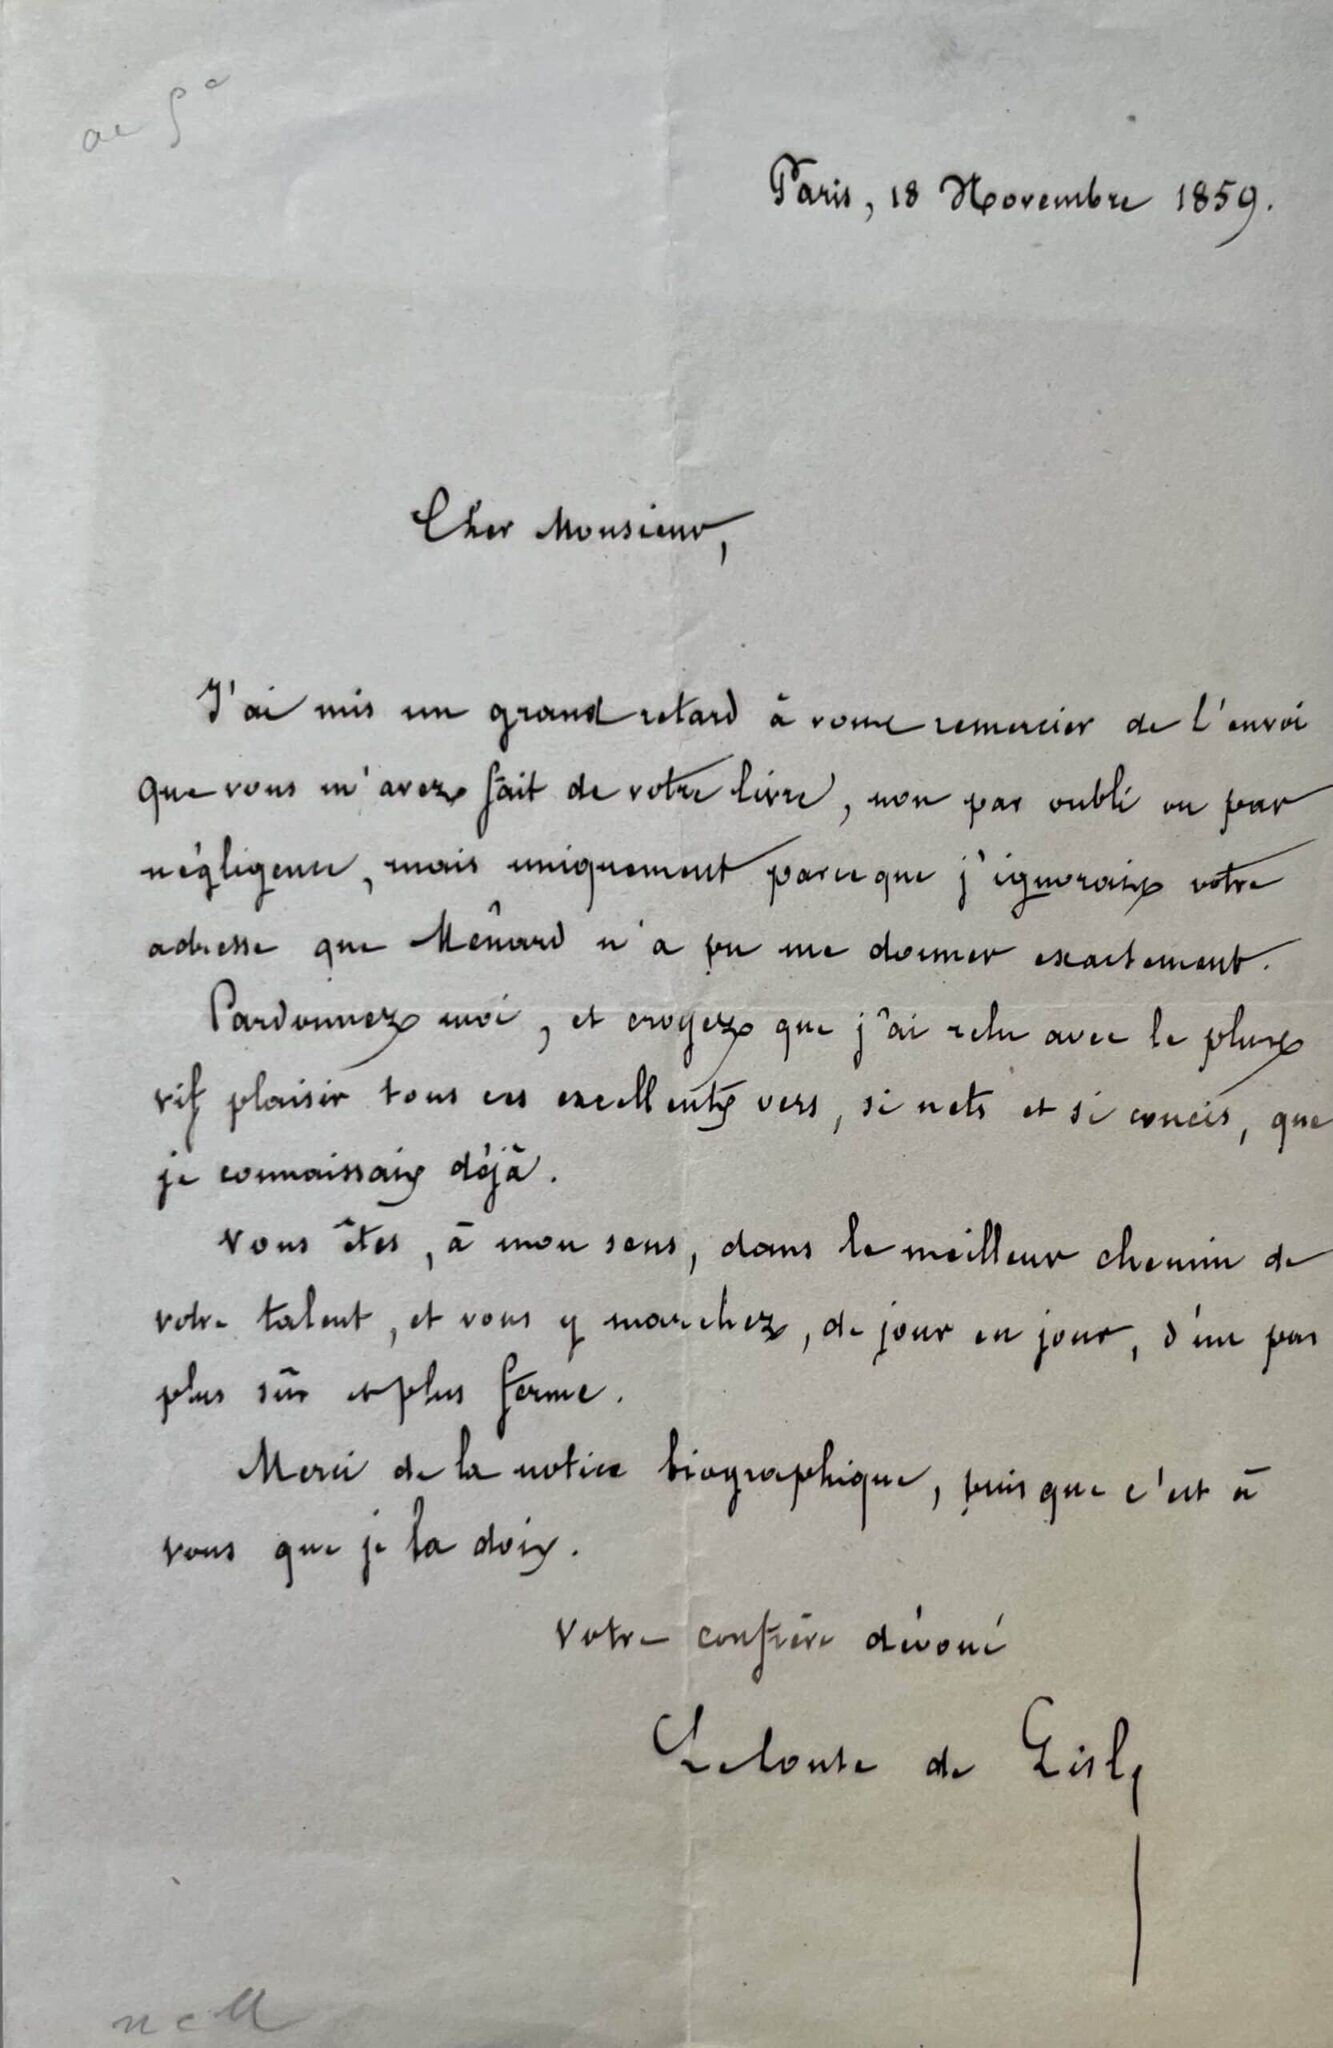 Paris, 18 Novembre 1859.
Cher Monsieur,
J'ai mis un grand retard à vous remercier de l'envoi
que vous m'avez fait de votre livre, non par oubli ou par
négligence, mais uniquement parceque j'ignorais votre
adresse que Ménard n'a pu me donner exactement.
Pardonnez moi, et croyez que j'ai relu avec le plus
vif plaisir tous ces excellents vers, si nets et si concis, que
je connaissais déjà.
Vous êtes, à mon sens, dans le meilleur chemin de
votre talent, et vous y marchez, de jour en jour, d'un pas
plus sûr et plus ferme.
Merci de la notice biographique, puisque c'est à
vous que je la dois.
Votre confrère dévoué
Leconte de Lisle